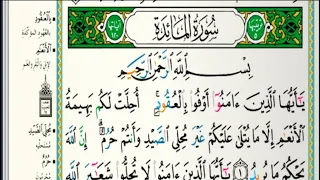 سُورَةُ المَائِدَةِ
بِسْمِ اللَّهِ الرَّحْمَٰنِ الرَّحِيمِ
يَٰٓأَيُّهَا الَّذِينَ ءَامَنُوٓا۟ أَوْفُوا۟ بِالْعُقُودِ أُحِلَّتْ لَكُم بَهِيمَةُ
الْأَنْعَٰمِ إِلَّا مَا يُتْلَىٰ عَلَيْكُمْ غَيْرَ مُحِلِّى الصَّيْدِ وَأَنتُمْ حُرُمٌ إِنَّ اللَّهَ
يَحْكُمُ مَا يُرِيدُ ١ يَٰٓأَيُّهَا الَّذِينَ ءَامَنُوا۟ لَا تُحِلُّوا۟ شَعَٰٓئِرَ اللَّهِ
بِالْعُقُودِ
بالعهود المؤكّدة
الْأَنْعَٰمِ
مُحِلِّى الصَّيْدِ